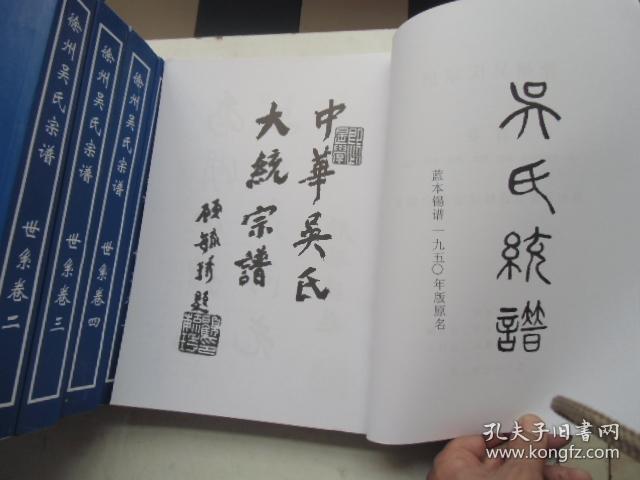 徐州吴氏宗谱 世系卷二
徐州吴氏宗谱 世系卷三
徐州吴氏宗谱 世系卷四
中華吳氏
大統宗譜
顾毓琇题
吳氏統譜
蓝本锡谱一九五〇年版原名
孔夫子旧书网
kongfz.com